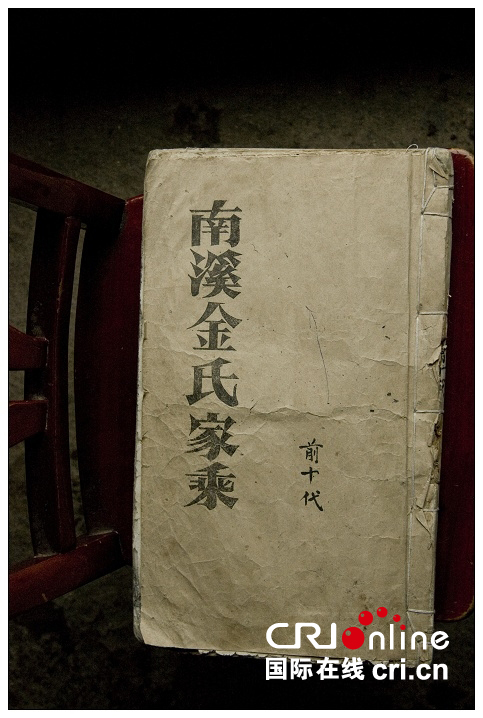 南溪金氏家乘
前十代
CRI online
国际在线 cri.cn